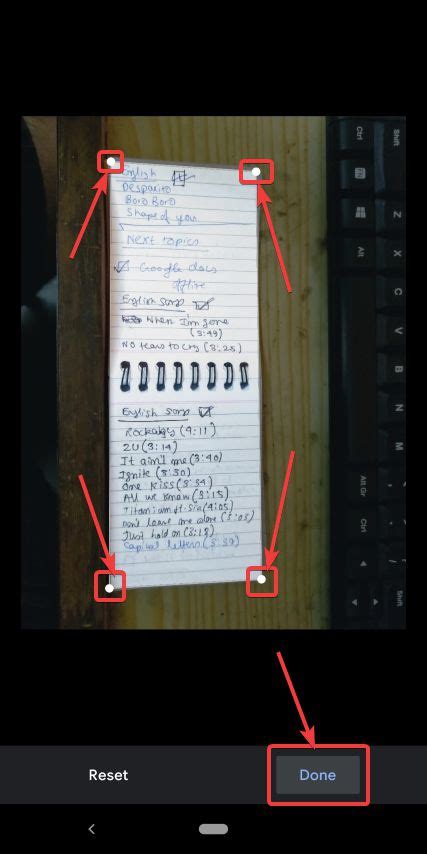 English
Despacito
Boro Boro
Shape of you
Next topics
Google docs
offline
English song
When I'm gone
(3:49)
No tears to cry (3:25)
English song
Rockabye (4:11)
2U (3:14)
It ain't me (3:40)
Ignite (3:30)
One kiss (3:34)
All we know (3:15)
Titanium ft. Sia (4:05)
Don't leave me alone (3:03)
Just hold on (3:18)
Capital letters (3:39)
Ctrl
Fn
Alt
Alt Gr
Ctrl
Shift
Z
X
C
V
B
N
M
Shift
Reset
Done